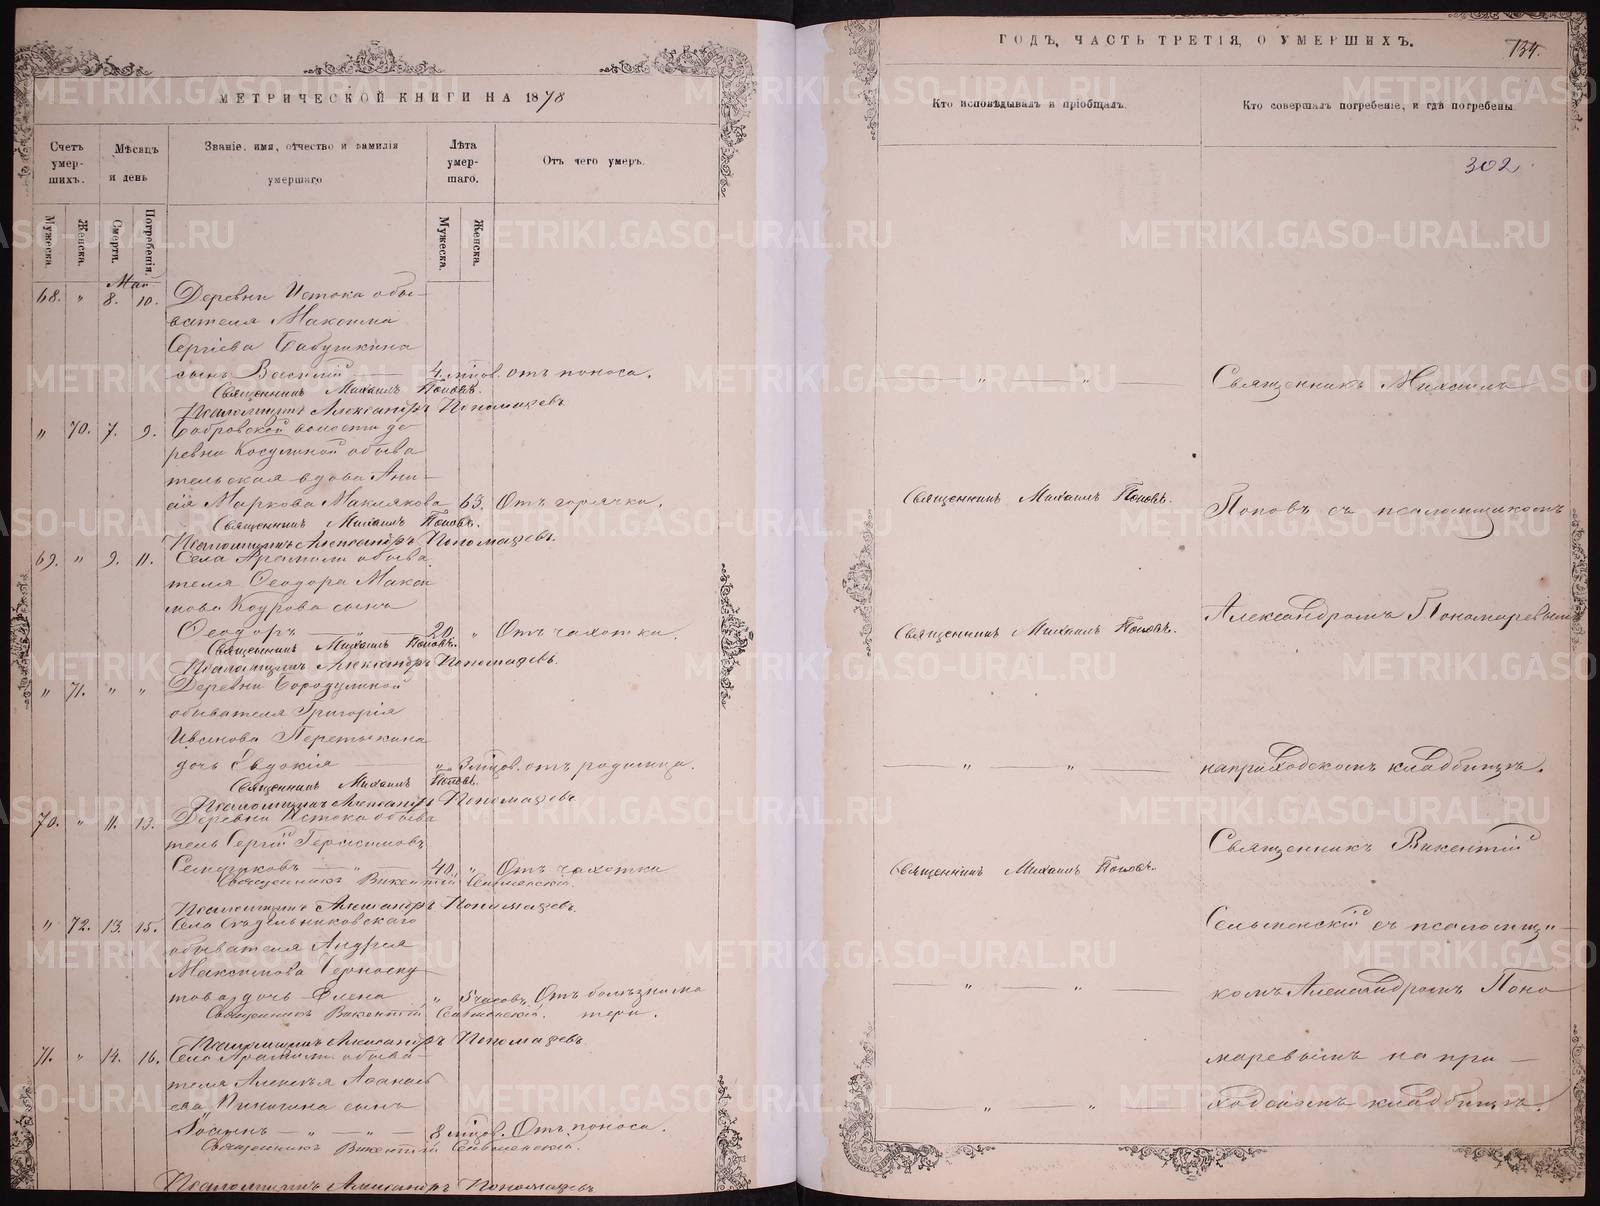 МЕТРИЧЕСКОЙ КНИГИ НА 1878
Счетъ умер-шихъ.
Мѣсяцъ и день
Званіе, имя, отчество и фамилія умершаго
Лѣта умер-шаго.
Отъ чего умеръ.
Мужеска. Женска. Смерти. Погребенія. Мужеска. Женска.
Май
68. " 8. 10. Деревни Истока обы-
вателя Максима
Сергіева Бабушкина
сынъ Василій 4 мѣсов. отъ поноса.
Священникъ Михаилъ Поповъ.
Псаломщикъ Александръ Пономаревъ.
" 70. 7. 9. Бобровской волости де
ревни Косулиной обыва
тельская вдова Ани-
сія Маркова Маклякова 63. Отъ горячки.
Священникъ Михаилъ Поповъ.
Псаломщикъ Александръ Пономаревъ.
69. " 9. 11. Села Арамили обыва
теля Ѳеодора Макси
мова Коурова сынъ
Ѳеодоръ 20 " Отъ чахотки.
Священникъ Михаилъ Поповъ.
Псаломщикъ Александръ Пономаревъ.
" 71. " " Деревни Бородулиной
обывателя Григорія
Иванова Перетыкина
дочь Евдокія " 3 мѣсов. отъ родимца.
Священникъ Михаилъ Поповъ.
Псаломщикъ Александръ Пономаревъ
70. " 11. 13. Деревни Истока обыва
тель Сергій Герасимовъ
40. " Отъ чахотки
Священникъ Викентій
Псаломщикъ Александръ Пономаревъ.
" 72. 13. 15. Села
обывателя Андрея
Максимова Черноску
това дочь Елена " 5 часовъ. Отъ болѣзни ма
тери.
Священникъ Викентій
Псаломщикъ Александръ Пономаревъ
71. " 14. 16. Села Арамили обыва-
теля Алексѣя Аѳанась
ева сынъ
Іоаннъ " " 8 мѣсов. Отъ поноса.
Священникъ Викентій
Псаломщикъ Александръ Пономаревъ
ГОДЪ, ЧАСТЬ ТРЕТІЯ, О УМЕРШИХЪ.
134.
Кто исповѣдывалъ и пріобщалъ.
Кто совершалъ погребеніе, и гдѣ погребены
302.
" " Священникъ Михаилъ
Священникъ Михаилъ Поповъ.
Поповъ съ псаломщикомъ
Александромъ Пономаревымъ
Священникъ Михаилъ Поповъ.
" " на приходскомъ кладбищѣ.
Священникъ Викентій
Священникъ Михаилъ Поповъ.
съ псаломщи-
" " комъ Александромъ Поно
маревымъ на при-
" " ходскомъ кладбищѣ.
METRIKI.GASO-URAL.RU